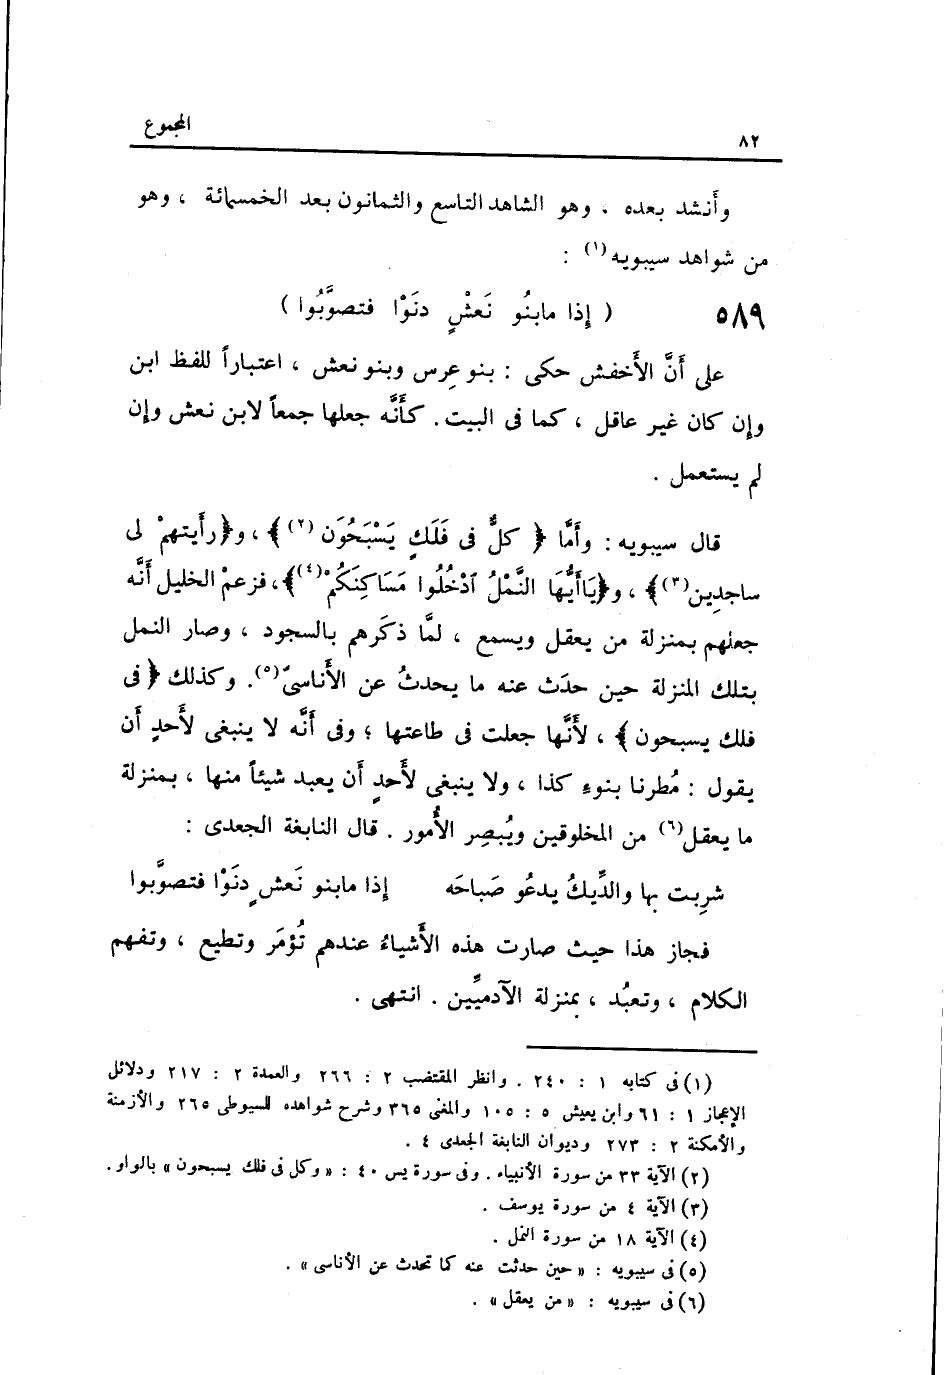 المجموع
٨٢
وأَنشد بعده ، وهو الشاهد التاسع والثمانون بعد الخمسمائة ، وهو
من شواهد سيبويه(١) :
٥٨٩ ( إِذا مابنُو نَعشْ‍ٍ دنَوْا فتصوَّبُوا )
على أَنَّ الأَخفش حكى : بنو عِرس وبنو نعش ، اعتباراً للفظ ابن
وإِن كان غير عاقل ، كما فى البيت . كأَنَّه جعلها جمعاً لابن نعش وإِن
لم يستعمل .
قال سيبويه : وأَمَّا ﴿ كلٌّ فى فَلَكٍ يَسْبَحُوَن (٢)﴾ ، و﴿رأَيتهمْ لى
ساجدِين(٣)﴾ ، و﴿يَاأَيُّهَا النَّمْلُ ٱدْخُلُوا مَسَاكِنَكُمْ(٤)﴾، فزعمْ الخليل أَنَّه
جعلهم بمنزلة من يعقل ويسمع ، لمَّا ذكَرهم بالسجود ، وصار النمل
بتلك المنزلة حين حدَث عنه ما يحدثُ عن الأَناسىّ(٥). وكذلك ﴿ فى
فلك يسبحون ﴾ ، لأَنَّها جعلت فى طاعتها ؛ وفى أَنَّه لا ينبغى لأَحدٍ أَن
يقول : مُطرنا بنوءِ كذا ، ولا ينبغى لأَحدٍ أَن يعبد شيئاً منها ، بمنزلة
ما يعقل(٦) من المخلوقين ويُبصِر الأُمور . قال النابغة الجعدى :
شرِبت بها والدِّيكُ يدعُو صَباحَه إِذا مابنو نَعش‍ٍ دنَوْا فتصوَّبوا
فجاز هذا حيث صارت هذه الأَشياءُ عندهم تُؤمَر وتطيع ، وتفهم
الكلام ، وتعبُد ، بمنزلة الآدميِّين . انتهى .
(١) فى كتابه ١ : ٢٤٠ . وانظر المقتضب ٢ : ٢٦٦ والعمدة ٢ : ٢١٧ ودلائل
الإعجاز ١ : ٦١ وابن يعيش ٥ : ١٠٥ والمغنى ٣٦٥ وشرح شواهده للسيوطى ٢٦٥ والأزمنة
والأمكنة ٢ : ٢٧٣ وديوان النابغة الجعدى ٤ .
(٢) الآية ٣٣ من سورة الأنبياء . وفى سورة يس ٤٠ : «وكل فى فلك يسبحون» بالواو .
(٣) الآية ٤ من سورة يوسف .
(٤) الآية ١٨ من سورة النمل .
(٥) فى سيبويه : «حين حدثت عنه كما تحدث عن الأناسى» .
(٦) فى سيبويه : «من يعقل» .